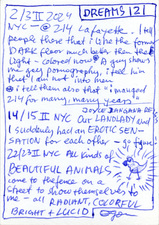 2/3 II 2024 DREAMS 121
NYC — @ 214 Lafayette. I tell
people those that I like the former
DARK from much better than the
Light - colored now. A guy shows
me gay pornography, I tell him
that I am not into them
I tell them also that "I managed
214 for many, many years"
14/15 II NYC Our LANDLADY and
I suddenly had an EROTIC SEN-
SATION for each other - go figure
22/23 II NYC All kinds of
BEAUTIFUL ANIMALS
come to the fence on a
street to show themselves to
me - all RADIANT, COLORFUL
BRIGHT & LUCID